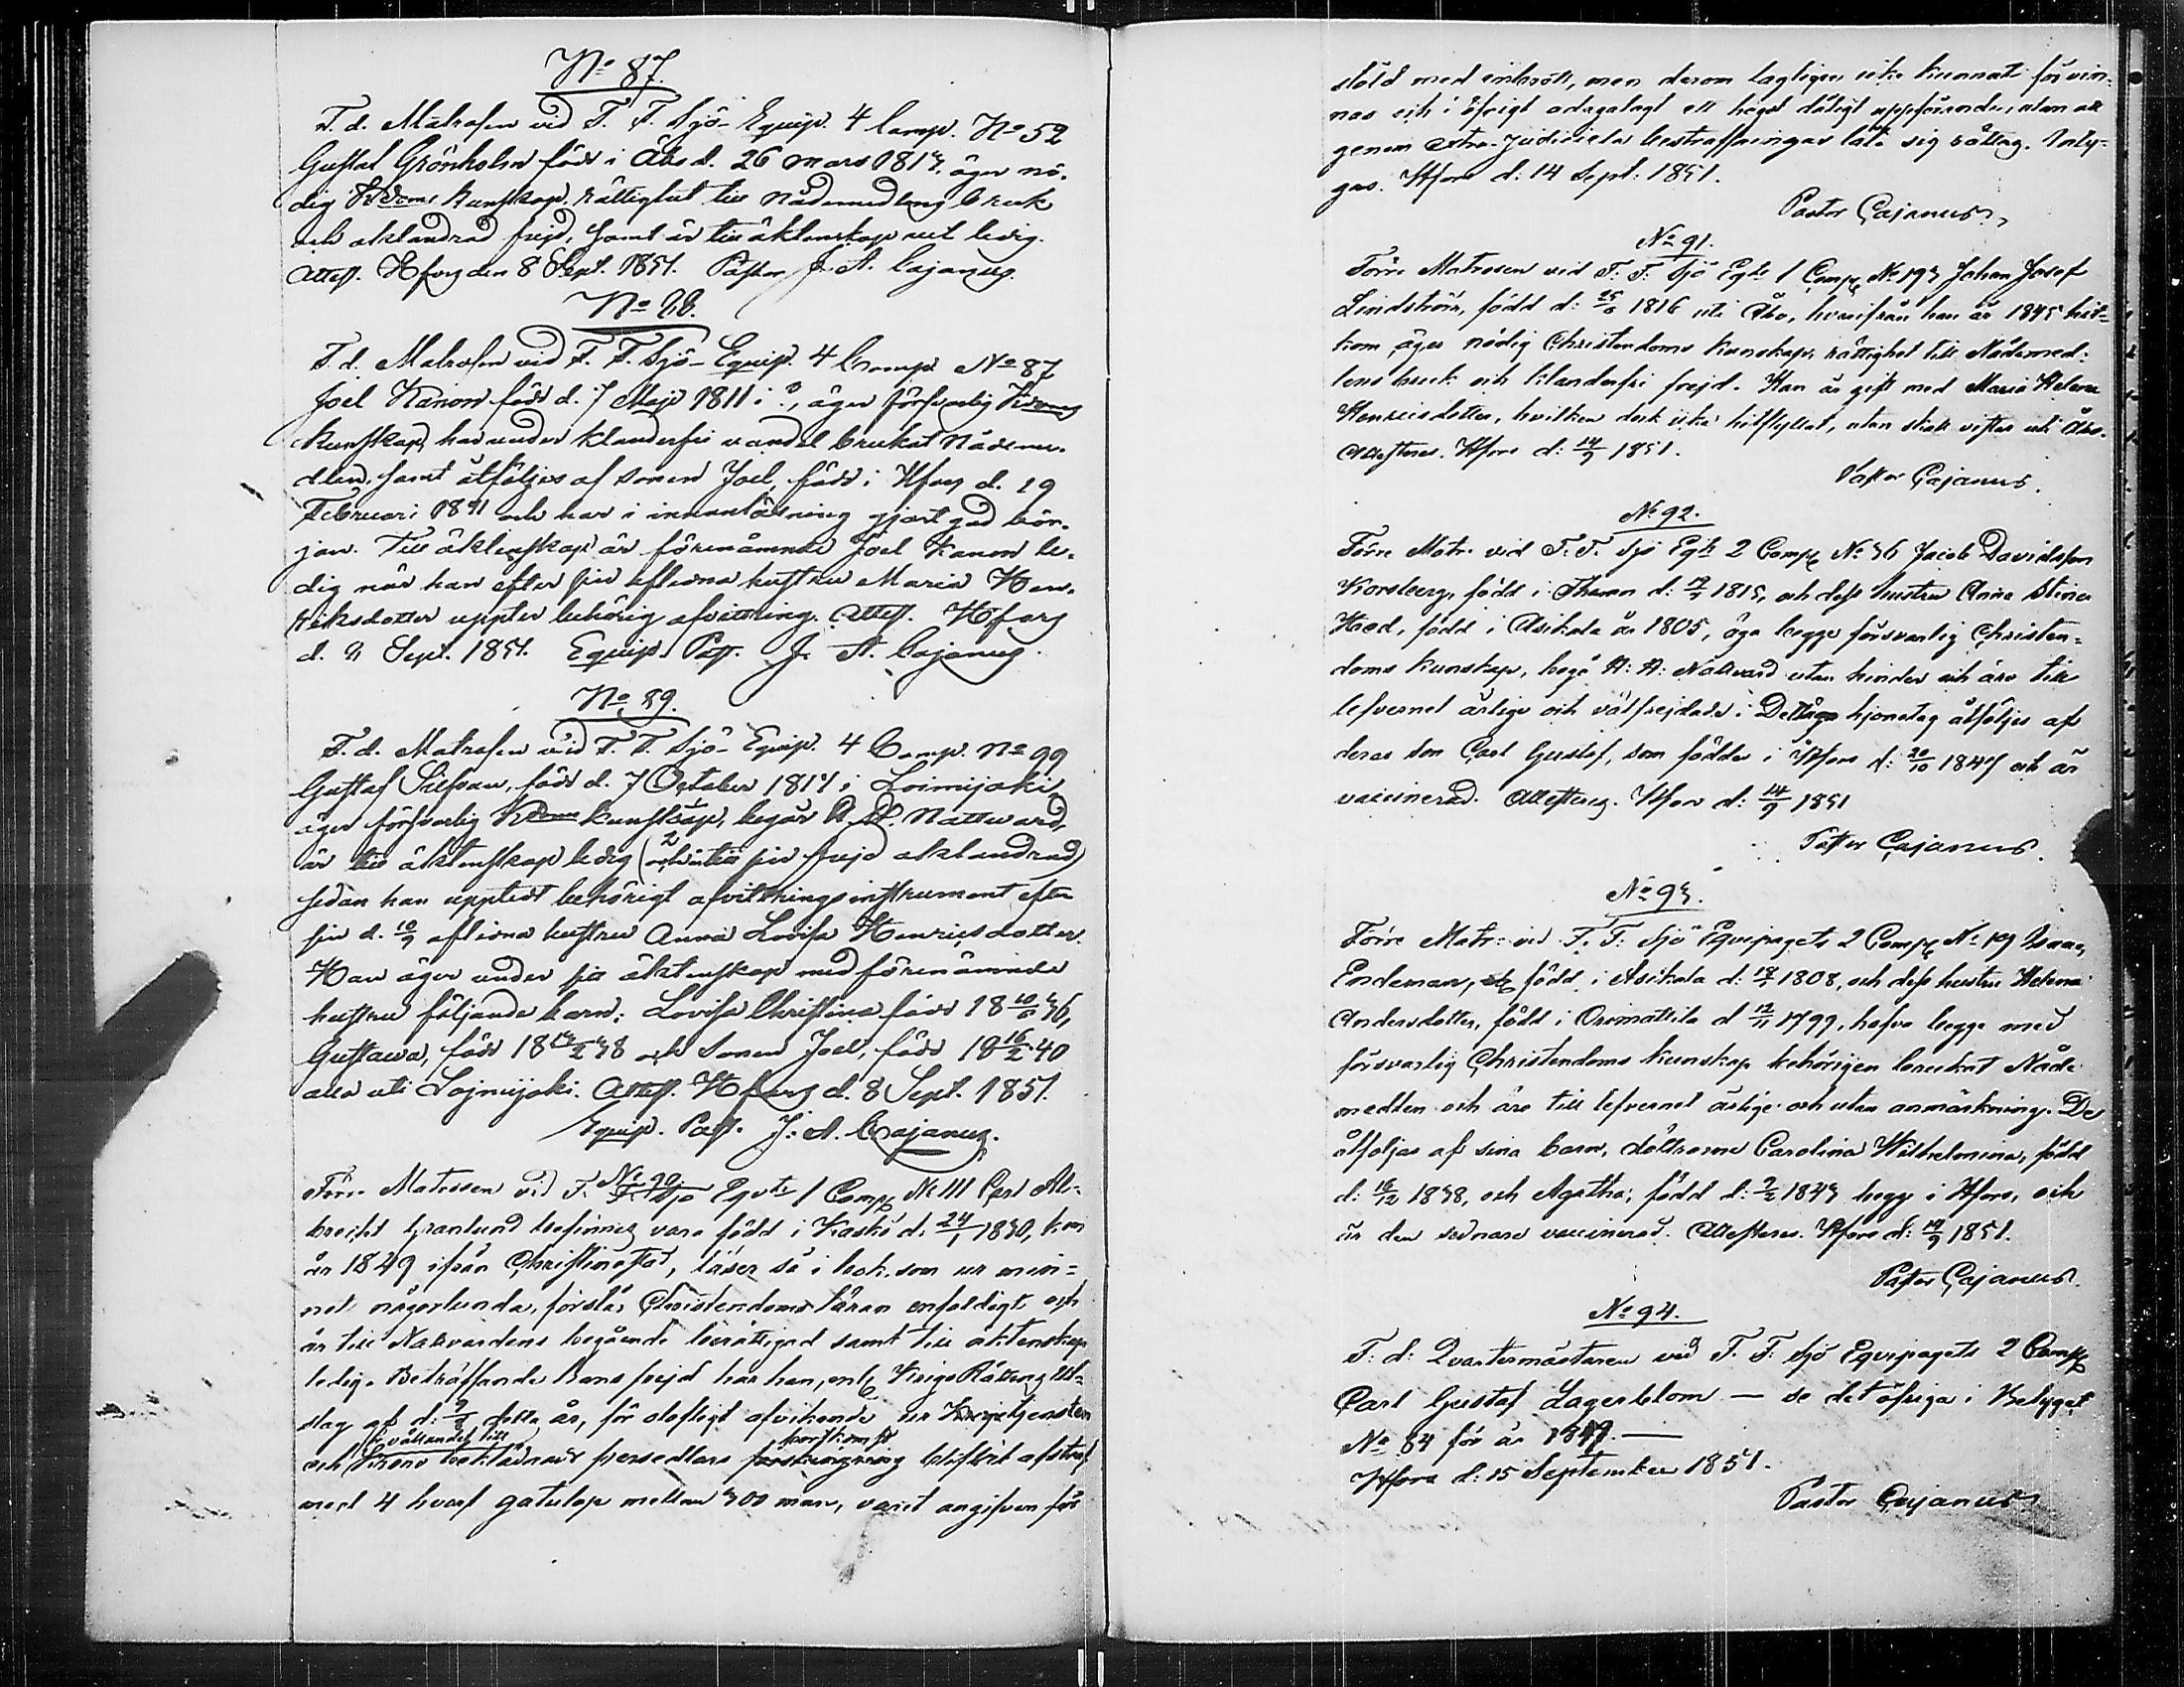 No 87.
F. d. Matrosen vid F. F. Sjö-Equip. 4 Comp. No 52
Gustaf Grönholm född i Åbo d. 26 Mars 1813, äger nö-
dig Kdoms kunskap, rättighet till Nådemedlens bruk
och oklandrad frejd, samt är till äktenskap ledig.
Attest. Hfors den 8 Sept. 1851. Pastor J. A. Cajanus.
No 88.
F. d. Matrosen vid F. F. Sjö-Equip. 4 Comp. No 87
Joel Kanon född d. 7 Maji 1811 i ?, äger försvarlig Kdoms
kunskap, har under klanderfri vandel brukat Nådeme-
dlen, samt åtföljes af sonen Joel, född i Hfors d. 19
Februari 1841 och har i innanläsning gjort god bör-
jan. Till äktenskap är förenämnde Joel Kanon le-
dig när han efter sin aflidna hustru Maria Hen-
riksdotter uppter behörig afvittring. Attest. Hfors
d. Sept. 1851. Equip. Past. J. A. Cajanus.
No 89.
F. d. Matrosen vid F. F. Sjö-Equip. 4 Comp. No 99
Gustaf född d. 7 October 1814 i Loimijoki,
äger försvarlig Kdoms kunskap, begår H. H. Nattvard,
är till äktenskap ledig (2 och är till sin frejd oklandrad)
sedan han upptedt behörigt afvittringsinstrument efter
sin d. 10/9 aflidna hustru Anna Lovisa Henricsdotter.
Han äger under sitt äktenskap med förenämnda
hustru följande barn: Lovisa Christina född 18 36,
Gustawa, född 18 38 och sonen Joel, född 18 16/2 40
alla uti Lojmijoki. Attest. Hfors d. 8 Sept. 1851.
Equip. Past. J. A. Cajanus.
No 90.
Förre Matrosen vid F. F. Sjö Eqvts 1 Comp No 111 Carl Al-
brecht Granlund befinnes vara född i Kaskö d. 24/1 1830, kom
år 1849 ifrån Christinestad, läser så i bok som ur min-
net någorlunda, förstår Christendoms läran enfaldigt och
är till Nattvardens begående berättigad samt till äktenskap
ledig. Beträffande hans frejd har han, enl Krigs Rättens Ut-
slag af d: detta år, för olofligt afvikande ur Krigstjensten
och för vållandet till Krono beklädnads persedlars bortkomst blifvit afstraf
med 4 hvarf gatulop mellan 300 man, varit angifven för
stöld med inbrott, men derom lagligen icke kunnat förvin-
nas och i öfrigt ådagalagt ett högst dåligt uppförande, utan att
genom extra-judiciela bestraffningar låta sig rättag. Inty-
gas. Hfors d: 14 Sept: 1851.
Pastor Cajanus.
No 91.
Förre Matrosen vid F. F. Sjö Eqts 1 Comp No 193 Johan Josef
Lindström, född d: 1816 uti Åbo, hvarifrån han år 1845 hit-
kom äger nödig Christendoms kunskap, rättighet till Nådemed-
lens bruk och klanderfri frejd. Han är gift med Maria Helena
Henricsdotter, hvilken dock icke hitflyttat, utan vistas uti Åbo.
Attesteras. Hfors d: 14/9 1851.
Pastor Cajanus.
No 92.
Förre Matr. vid F. F. Sjö Eqts 2 Comp No 36 Jacob Davidsson
Korsberg, född i d: 1815, och dess hustru Anna Stina
Hed, född i Asikala år 1805, äga begge försvarlig Christen-
doms kunskap, begå H: H: Nattvard utan hinder och äro till
lefvernet ärlige och välfrejdade i hjonelag åtföljes af
deras son Carl Gustaf, som föddes i Hfors d: 20/10 1847 och är
vaccinerad. Attesteras. Hfors d: 14/9 1851
Pastor Cajanus.
No 93.
Förre Matr: vid F. F: Sjö Eqvipagets 2 Comp No 19
Endeman, född i Asikala d: 1808, och dess hustru Helena
Andersdotter, född i Orimattila d 12/11 1799, hafva begge med
försvarlig Christendoms kunskap behörigen brukat Nåde-
medlen och äro till lefvernet ärlige och utan anmärkning. De
åtföljas af sina barn, döttrarne Carolina Wilhelmina, född
d: 16/12 1838, och Agatha, född d: 2/2 1843 begge i Hfors, och
är den sednare vaccinerad. Attesteras. Hfors d: 14/9 1851.
Pastor Cajanus.
No 94.
F: d: Qvartermästaren vid F. F: Sjö Eqvipagets 2 Comp
Carl Gustaf Lagerblom — se det öfriga i Betyget
No 84 för år 1849. —
Hfors d: 15 September 1851.
Pastor Cajanus